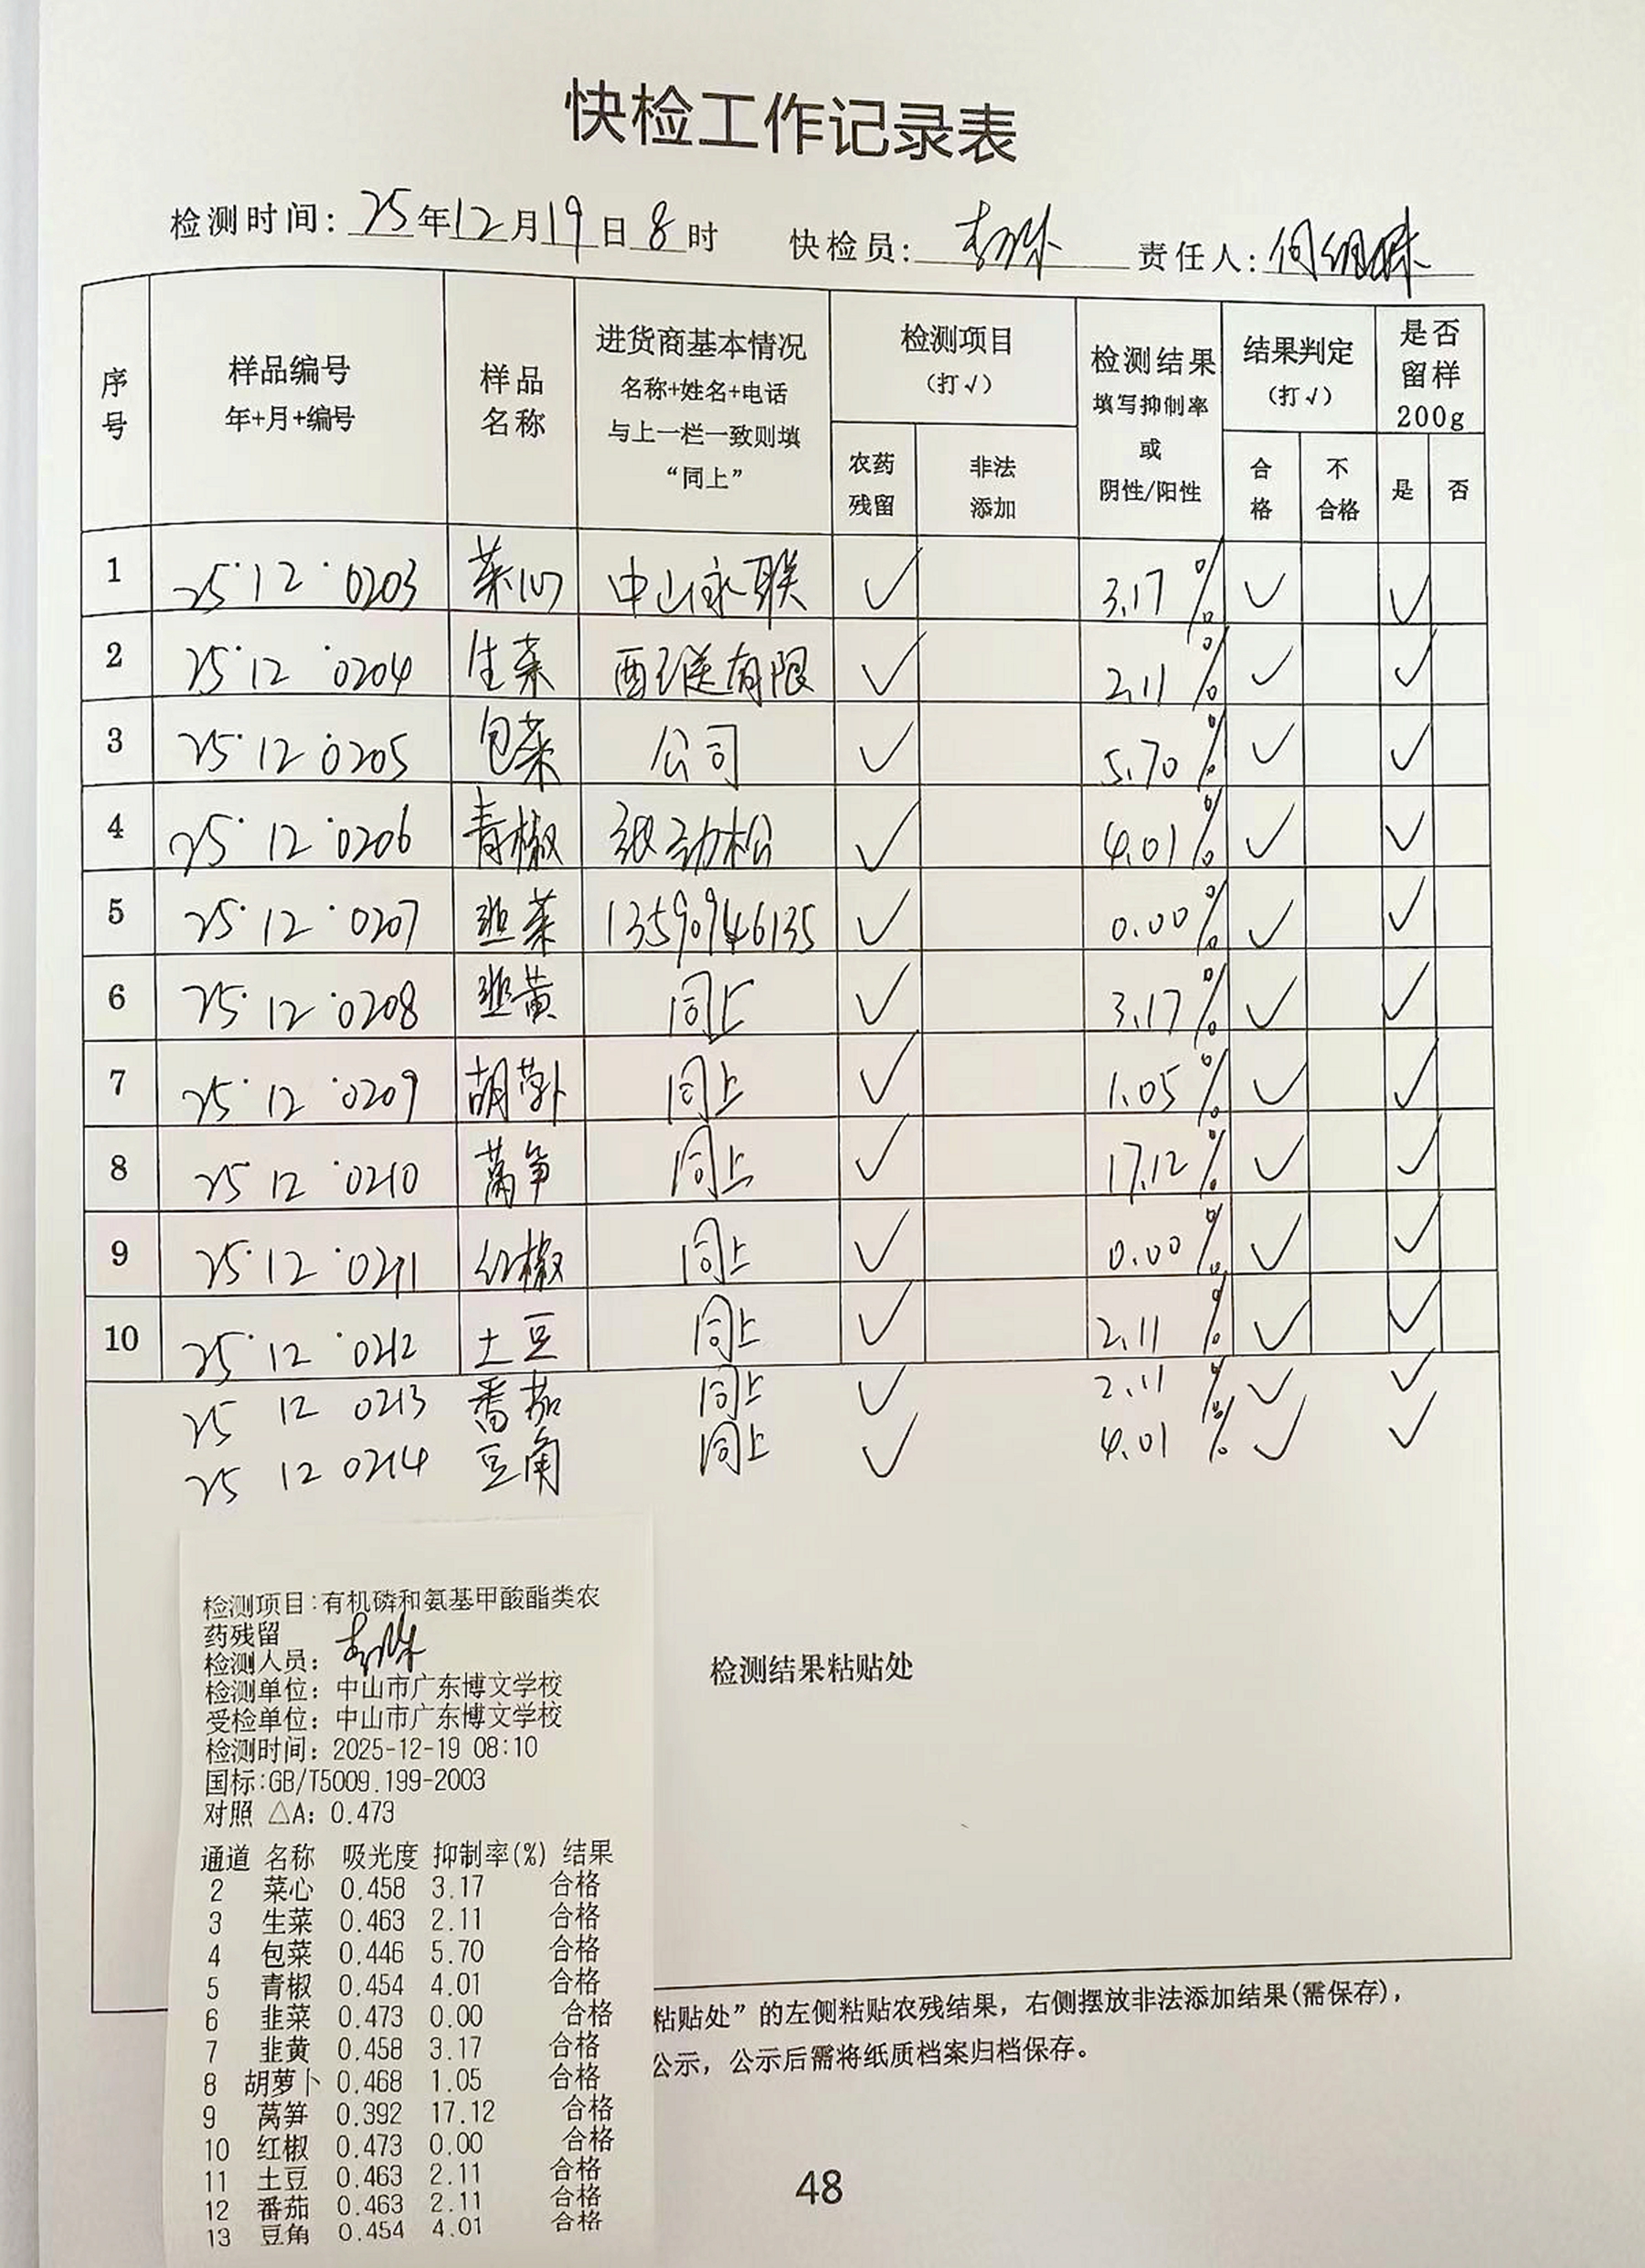 快检工作记录表
检测时间: 25年12月19日8时 快检员: 责任人:
序号 样品编号 年+月+编号 样品名称 进货商基本情况 名称+姓名+电话 与上一栏一致则填“同上” 检测项目(打√) 农药残留 非法添加 检测结果 填写抑制率或阴性/阳性 结果判定(打√) 合格 不合格 是否留样200g 是 否
1 25·12·0203 菜心 中山永联 ✓ 3.17% ✓ ✓
2 25·12·0204 生菜 配送有限 ✓ 2.11% ✓ ✓
3 25·12·0205 包菜 公司 ✓ 5.70% ✓ ✓
4 25·12·0206 青椒 张劲松 ✓ 4.01% ✓ ✓
5 25·12·0207 韭菜 13590946135 ✓ 0.00% ✓ ✓
6 25·12·0208 韭黄 同上 ✓ 3.17% ✓ ✓
7 25·12·0209 胡萝卜 同上 ✓ 1.05% ✓ ✓
8 25 12·0210 莴笋 同上 ✓ 17.12% ✓ ✓
9 25·12·0211 红椒 同上 ✓ 0.00% ✓ ✓
10 25·12·0212 土豆 同上 ✓ 2.11% ✓ ✓
25 12 0213 番茄 同上 ✓ 2.11% ✓ ✓
25 12 0214 豆角 同上 ✓ 4.01% ✓ ✓
检测结果粘贴处
检测项目:有机磷和氨基甲酸酯类农
药残留
检测人员:
检测单位: 中山市广东博文学校
受检单位: 中山市广东博文学校
检测时间: 2025-12-19 08:10
国标:GB/T5009.199-2003
对照 △A: 0.473
通道 名称 吸光度 抑制率(%) 结果
2 菜心 0.458 3.17 合格
3 生菜 0.463 2.11 合格
4 包菜 0.446 5.70 合格
5 青椒 0.454 4.01 合格
6 韭菜 0.473 0.00 合格
7 韭黄 0.458 3.17 合格
8 胡萝卜 0.468 1.05 合格
9 莴笋 0.392 17.12 合格
10 红椒 0.473 0.00 合格
11 土豆 0.463 2.11 合格
12 番茄 0.463 2.11 合格
13 豆角 0.454 4.01 合格
粘贴处”的左侧粘贴农残结果，右侧摆放非法添加结果(需保存)，
公示，公示后需将纸质档案归档保存。
48